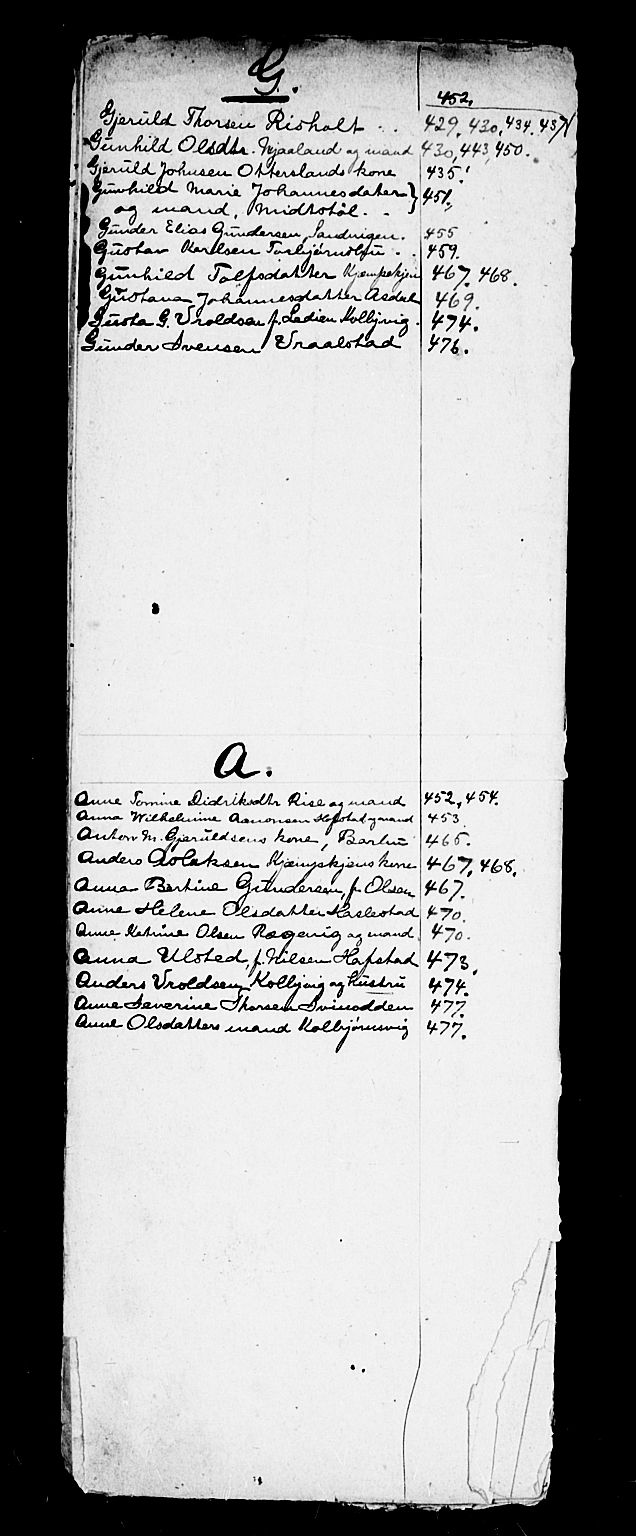 G.
452.
Gjeruld Thorsen Risholt . . 429, 430, 434. 437
Gunhild Olsdtr. Njaaland og mand 430, 443, 450.
Gjeruld Johnsen Otterslands kone 435.
Gunhild Marie Johannesdatter } 451,
og mand, Midtstøl. .
Gunder Elias Gundersen, Sandvigen. 455
Gustav Karlsen Torbjørnsbu . . 459.
Gunhild Tolfsdatter 467, 468.
Gustava Johannesdatter Asdal 469.
Gusta G. Vroldsen f. Ladien Kolbjvig. 474.
Gunder Svensen Vraalstad 476.
A.
Anne Tomine Didriksdtr Rise og mand 452, 454.
Anna Wilhelmine Aanonsen og mand 453.
Anton M. Gjeruldsens kone, Barbu 465.
Anders Aslaksen kone 467, 468.
Anna Bertine Gundersen, f. Olsen 467.
Anne Helene Olsdatter Haslestad 470.
Anne Katrine Olsen Rægevig og mand. 470.
Anna Ulsted, f. Nilsen Hafstad 473.
Anders Vroldsen Kolbjvig og hustru 474.
Anne Severine Thorsen Svinodden 477.
Anne Olsdatters mand Kolbjørnsvig 477.